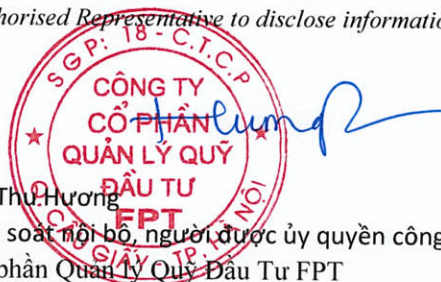 horised Representative to disclose informatio
SGP: 18 - C.T.C.P
CÔNG TY
CỔ PHẦN
QUẢN LÝ QUỸ
ĐẦU TƯ
FPT
Q. CẦU GIẤY - TP. HÀ NỘI
Thu Hương
soát nội bộ, người được ủy quyền công
phần Quản lý Quỹ Đầu Tư FPT